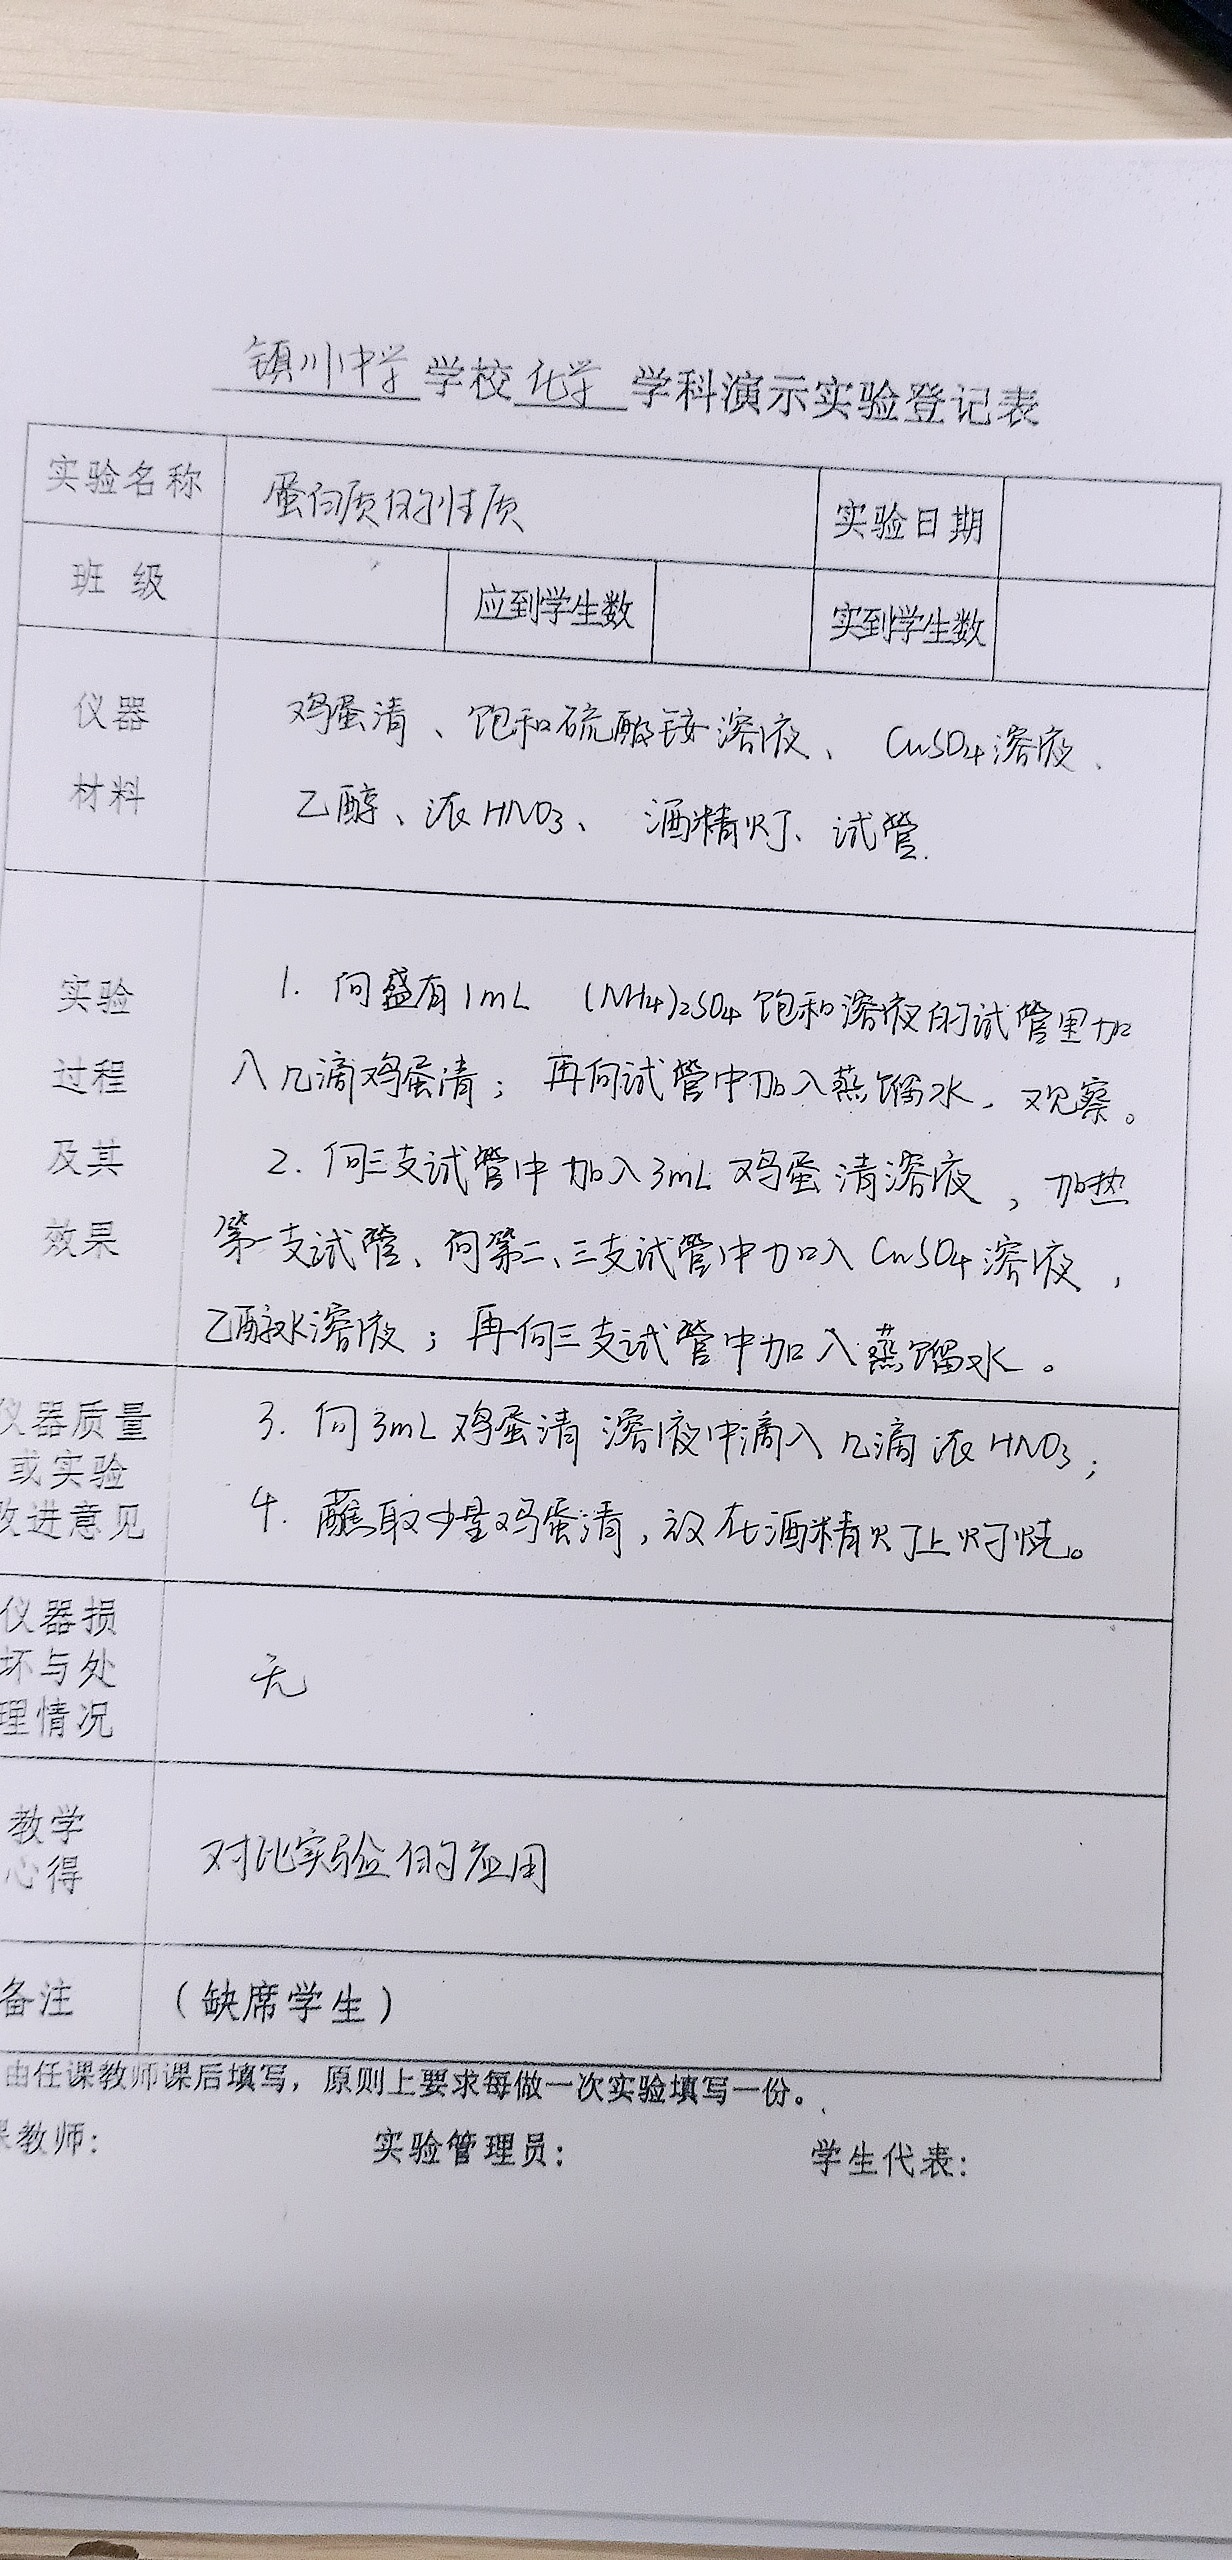 镇川中学 学校 化学 学科演示实验登记表
实验名称 蛋白质的性质 实验日期
班 级 应到学生数 实到学生数
仪器 鸡蛋清、饱和硫酸铵溶液、 CuSO4溶液、
材料 乙醇、浓HNO3、 酒精灯、试管.
实验 1. 向盛有1mL (NH4)2SO4饱和溶液的试管里加
过程 入几滴鸡蛋清; 再向试管中加入蒸馏水, 观察。
及其 2. 向三支试管中加入3mL鸡蛋清溶液, 加热
效果 第一支试管、向第二、三支试管中加入CuSO4溶液,
乙醇水溶液; 再向三支试管中加入蒸馏水。
仪器质量 3. 向3mL鸡蛋清溶液中滴入几滴浓HNO3;
或实验
改进意见 4. 蘸取少量鸡蛋清, 放在酒精灯上灼烧。
仪器损
坏与处 无
理情况
教学 对比实验的应用
心得
备注 (缺席学生)
由任课教师课后填写, 原则上要求每做一次实验填写一份。
课教师: 实验管理员: 学生代表: